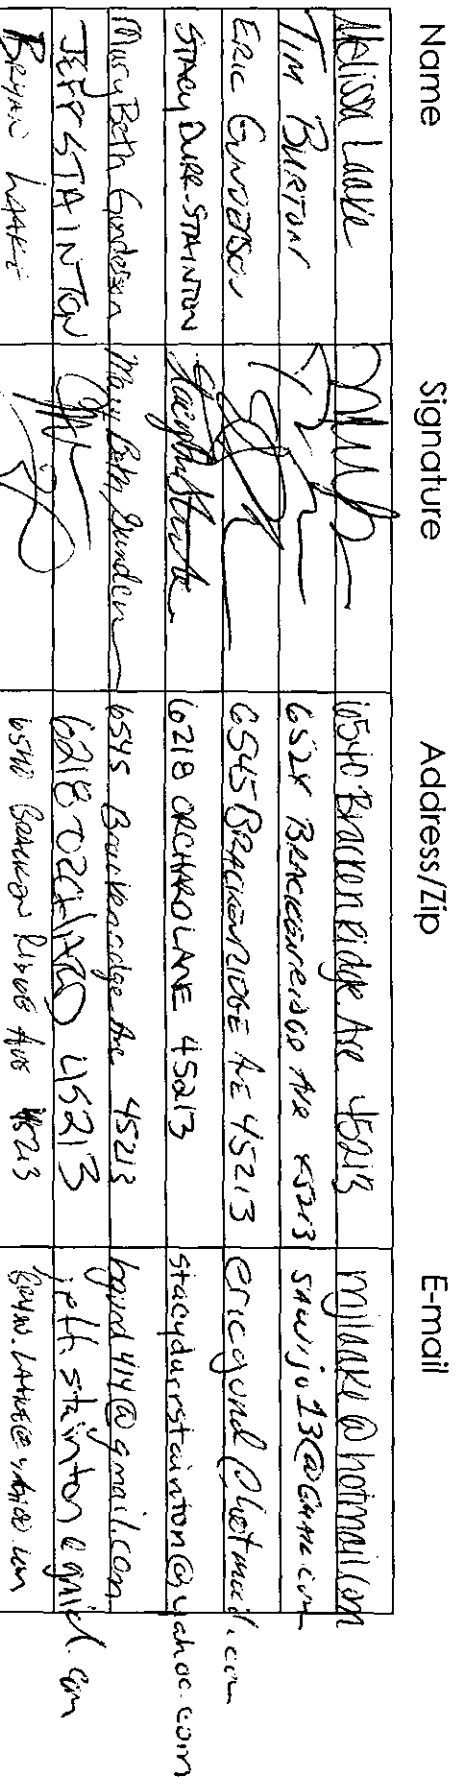 Name Signature Address/Zip E-mail
Melissa Laake 6540 Brackenridge Ave 45213 mjlaake@hotmail.com
TIM BURTON BRACKENRIDGE AVE 45213
ERIC GUNDERSON 6545 BRACKENRIDGE AVE 45213 ericgund@hotmail.com
STACY DURR-STAINTON 6218 ORCHARD LANE 45213 stacydurrstainton@yahoo.com
Mary Beth Gunderson Mary Beth Gunderson 6545 Brackenridge Ave 45213
JEFF STAINTON 6218 ORCHARD 45213 jeff.stainton@gmail.com
BRYAN LAAKE 6540 BRACKEN RIDGE AVE 45213 BRYAN.LAAKE@yahoo.com